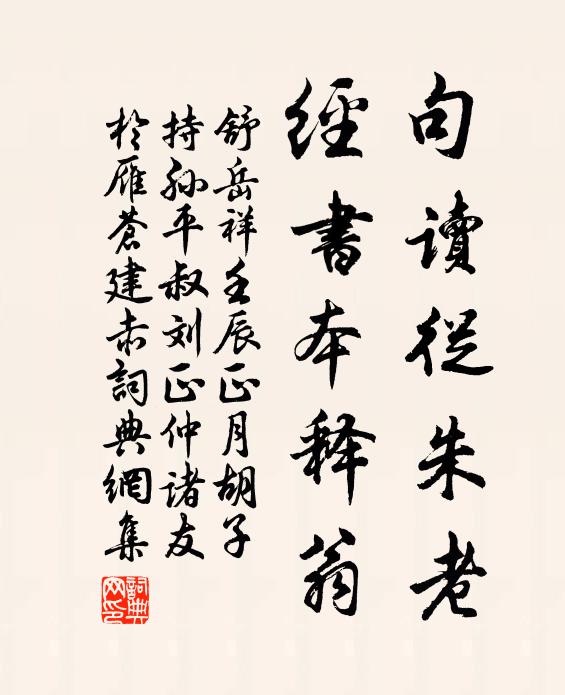 句讀從朱老
經書本释翁
舒岳祥壬辰正月胡子
持孙平叔刘正仲诸友
於雁蒼建赤詞典網集
詞典网印